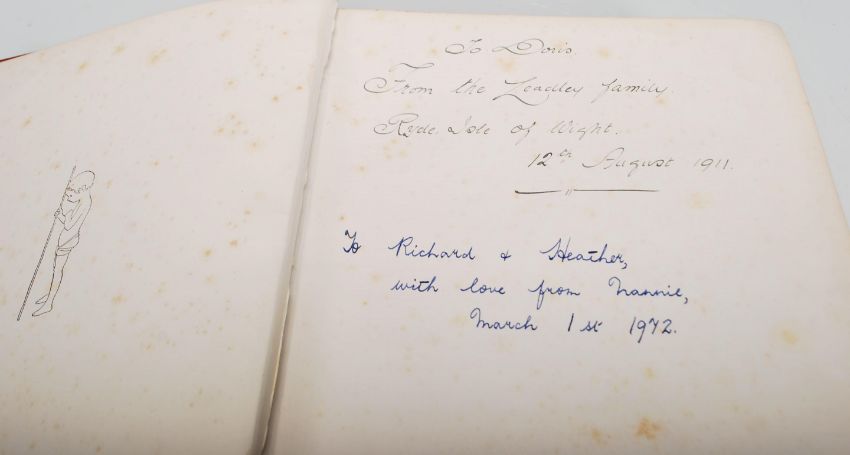 To Doris.
From the Leadley family.
Ryde Isle of Wight.
12th August 1911.
To Richard & Heather,
with love from Nannie,
March 1st 1972.